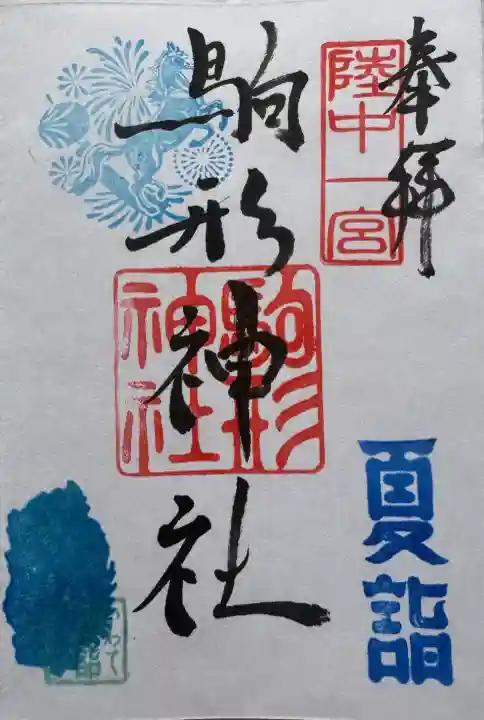 奉拝
陸中一宮
駒形神社
駒形神社
夏詣